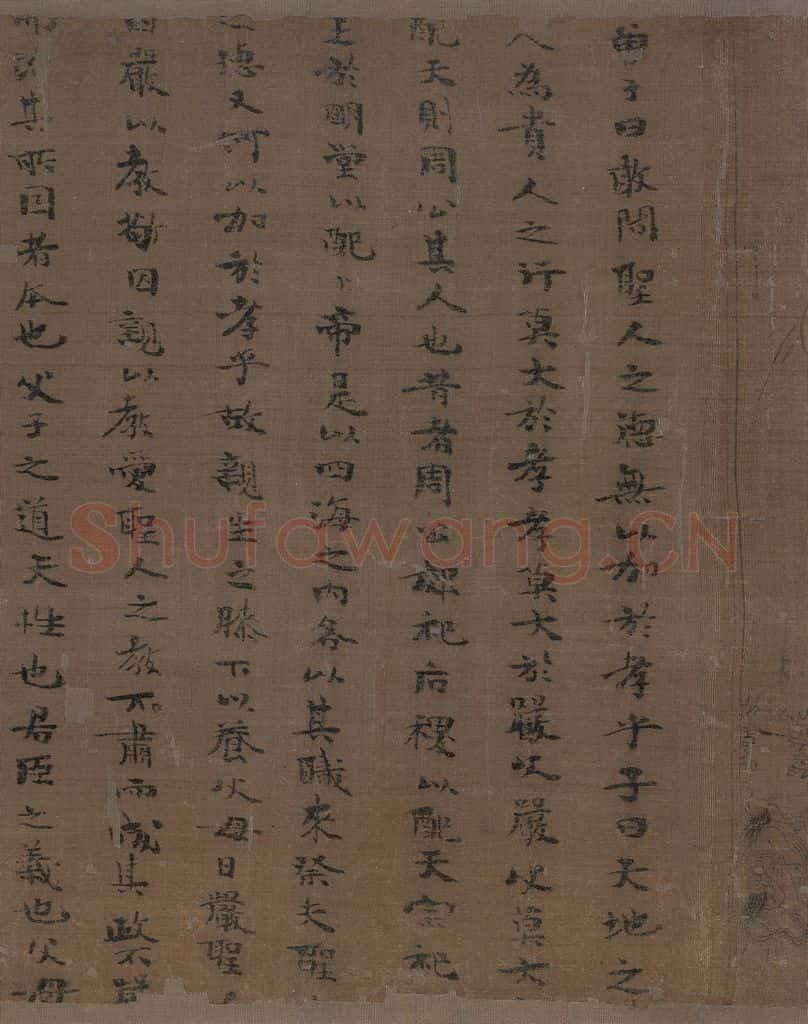 曾子曰敢問聖人之德無以加於孝乎子曰天地之
人為貴人之行莫大於孝孝莫大於嚴父嚴父莫大
配天則周公其人也昔者周公祀后稷以配天宗祀
王於明堂以配上帝是以四海之內各以其職來祭夫聖
之德又何以加於孝乎故親生之膝下以養父母日嚴聖
因嚴以教敬因親以教愛聖人之教不肅而成其政不
治其所因者本也父子之道天性也君臣之義也父母
Shufawang.CN